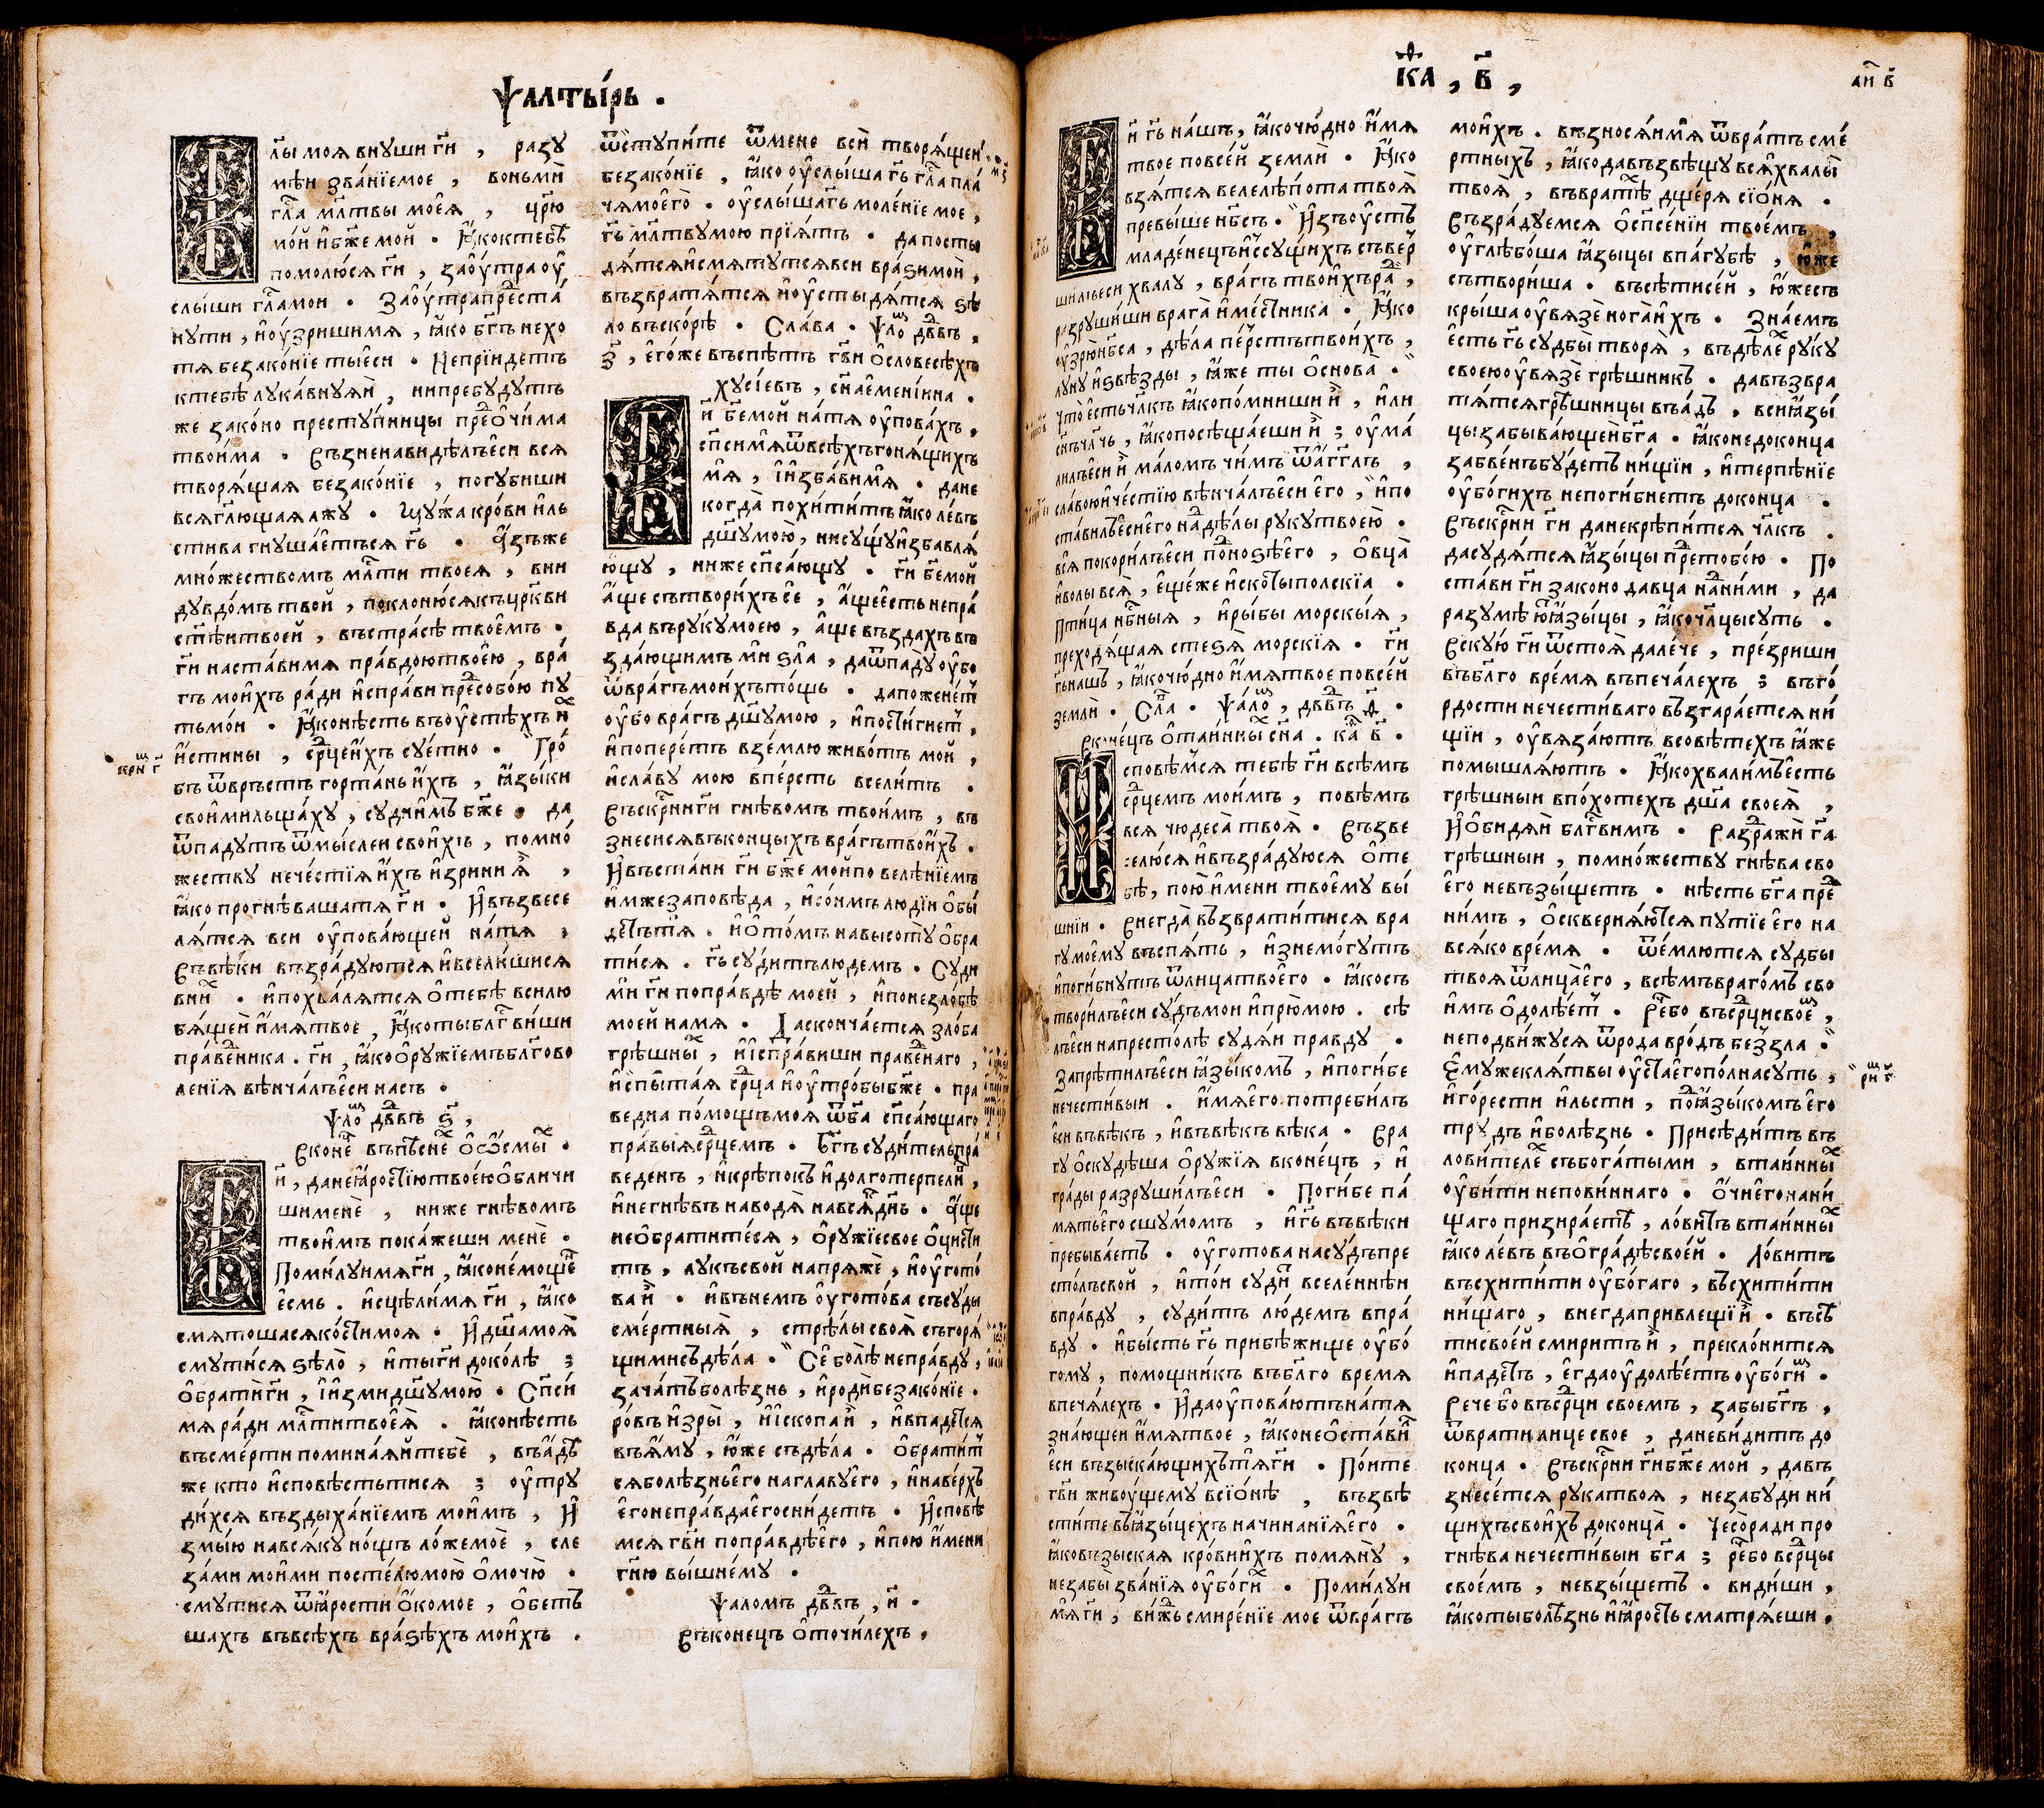 Ѱалты́рь .
Гл҃ы моя внуши гй҃ , разу
мѣи зва́нїемое , воньмѝ
гла҃ мл҃твы моея̀ , цр҃ю
мо́й и҆бж҃е мой . Ꙗ҆коктебѣ
помолю́ся гй҃ , заоу҆тра оу҆
слы́ши гл҃амои . Заоу҆трапрⷣеста́
нути , и҆оу҆зришимя , ꙗ҆ко бг҃ъ нехо
тя беззако́нїе тыесѝ . Неприидетъ
ктебѣ лука́внуяй , нипребудутъ
же зако́но престу́пницы прⷣео҆чи́ма
твои́ма . Възненавидѣлъесѝ вся
творя́щая безако́нїе , погубиши
всягл҃ющая лжу . Мужа кро́ви и҆ль
стива гнуша́етъся гь҃ . А҆зъже
мно́жествомъ мл҃ти твоея , вни
дувдо́мъ твой , поклоню́сякъцр҃кви
ст҃ѣитвоей , въстра́сѣ твое́мъ .
гй҃ наста́вимя пра́вдоютвое́ю , вра́
гъ мои́хъ ради и҆спра́ви прⷣесобо́ю пу
тьмо́и . Ꙗ҆конѣсть въоу҆стѣхъ и҆ⷯ
и҆стины , срⷣцеи҆хъ суе́тно . Гро́
бъ ѿвръстъ горта́нь и҆хъ , ꙗ҆зы́ки
свои́мильща́ху , суди́имъ бж҃е . да
ѿпаду́тъ ѿмы́слеи свои́хъ , помно́
жеству нече́стїя и҆́хъ и҆зрини я҆̀ ,
ꙗ҆ко прогнѣвашатя гй҃ . И҆възвесе
ля́тся вси оу҆пова́ющеи на́тя ,
Въвѣки възра́дуются и҆всели́шися
вниⷯ . и҆похва́лятся о҆тебѣ̀ вси лю
бя́щеи и҆́мятвое , Ꙗ҆котыблг҃ви́ши
пра́веⷣника . гй҃ , ꙗ҆коо҆ру́жїемъблг҃ово
ленїя вѣнча́лъесѝ насъ .
Ѱло́ⷨ дв҃дъ ѕ҃ ,
Вконе́ⷰ въпѣ́снеⷯ о҆ѻ҆смы́ⷯ .
Гй҃ , данеꙗ҆́ростїютвое́юо҆бличи
шименѐ , ниже гнѣвомъ
твои́мъ пока́жеши менѐ .
Поми́луимя гй҃ , ꙗ҆коне́мощеⷩ҇
е҆смь . и҆сцѣли́мя гй҃ , ꙗ҆ко
смято́шасяко́стимоя . И҆дш҃амоя̀
смути́ся ѕѣло̀ , и҆тыгй҃ доко́лѣ ;
о҆брати́гй҃ , и҆и҆зми́дш҃умою̀ . Сп҃си́
мя ра́ди мл҃титвоея̀ . Ꙗ҆конѣсть
въсме́рти помина́яйтебѐ , въа҆́дѣ
же кто и҆сповѣстьтися ; оу҆тру
ди́хся въздыха́нїемъ мои́мъ , И҆
змы́ю навсяку но́щъ ло́жемоѐ , сле
за́ми мои́ми посте́люмою̀ о҆мочю̀ .
смути́ся ѿꙗ҆́рости о҆́комое , о҆бетъ
ша́хъ въвсѣхъ вра́ѕѣхъ мои́хъ .
ѿступи́те ѿмене всѝ творя́щеи
безако́нїе , ꙗ҆ко оу҆слы́ша гь҃ гла҃ пла́
чямоего̀ . оу҆слы́шагь҃ моле́нїе мое ,
гь҃ мл҃твумою прїя́тъ . да посты
дя́тсяи҆смяту́тсявси вра́ѕимои̂ ,
възвратя́тся и҆оу҆сты дя́тся ѕѣ
ло въско́рѣ . Сла́ва . Ѱло́ⷨ дв҃дъ ,
з҃ , е҆го́же въспѣ́тъ гв҃и о҆словесѣ́хъ
хусі́евъ , сн҃ае҆мені́ина .
Гй҃ бж҃емой на́тя оу҆пова́хъ ,
сп҃симя̂ѿвсѣ́хъгоня́щихъ
мя̂ , и҆и҆зба́вимя̂ . дане
когда̀ похи́титъ ꙗ҆ко ле́въ
дш҃умою̀ , нису́щуи҆збавля́
ющу , ниже сп҃са́ющу . гй҃ бж҃емой
а҆́ще сътвори́хъ сѐ , а҆́щее́сть непра́
вда въру́кумоею , а҆ще въздахъ въ
зда́ющимъ мѝ ѕла̀ , даѿпаду́ оу҆бо
ѿвра́гъмои́хъто́щь . дапожене́ⷮ
оу҆бо врагъ дш҃умою , и҆пости́гнеⷮ ,
и҆попере́тъ взе́млю живо́тъ мой ,
и҆сла́ву мою впе́рсть всели́тъ .
Въскрⷭ҇нигй҃ гнѣ́вомъ твои́мъ , въ
знеси́сявъконцы́хъ вра́гътвои́хъ .
И҆въста́ни гй҃ бж҃е мойпо велѣ́нїемъ
и҆мжезаповѣда , и҆со́нмъ люді́и о҆бы́
дⷷтътя̀ . и҆о҆то́мъ навысоту̀ о҆бра
ти́ся . гь҃ су́дитълюдемъ . Суди
мѝ гй҃ попра́вдѣ моей , и҆понезло́бѣ
моей намя . Да сконча́ется зло́ба
грѣ́шныⷯ , и҆и҆спра́виши праве́днаго ,
и҆спыта́я срⷣца и҆оу҆тро́быбж҃е . пра
ведна по́мощьмоя ѿбг҃а сп҃са́ющаго
пра́выясрⷣцемъ . Бг҃ъ суди́тельпра́
веденъ , и҆крѣ́покъ и҆долготерпели́ⷡ ,
и҆негнѣвъ наводя̀ нався́кⷣнь . А҆́ще
необрати́теся , о҆ру́жїесвое оци́сти
тъ , лукъсвой напряжѐ , и҆оу҆гото́
ва и҆̀ . и҆въ́немъ оу҆гото́ва съсу́ды
сме́ртныя̀ , стрѣ́лы своя̀ съгоря́
щимисъдѣ́ла . Се болѣ́ неправду ,
зача́тъболѣ́знь , и҆родѝбезако́нїе .
ро́въ и҆зры̀ , и҆и҆скопа и҆̀ , и҆впаде́тся
въя́му , ю҆́же съдѣ́ла . о҆брати́т
сяболѣ́зньего наглаву̀его , и҆наве́рхъ
е҆гонепра́вдаегосни́детъ . И҆сповѣ́
мся гв҃и попра́вдѣего , и҆пою и҆́мени
гн҃ю вы́шнему .
Ѱаломъ дв҃дъ , и҃ .
Въконецъ о҆точи́лехъ .
Каѳ , в҃ ,
Гй҃ гь҃ на́шъ , ꙗ҆кочю́дно и҆́мя
твое повсе́й землѝ . Ꙗ҆ко
взя́тся велелѣ́пота твоя̀
превы́ше нб҃съ . И҆зъоу҆́стъ
младе́нецъи҆ссу́щихъ съвер
ши́лъеси хвалу , вра́гъ твои́хъраⷣ ,
разруши́ши врага̀ и҆ме́стника . Ꙗ҆ко
оу҆зрю́нб҃са , дѣ́ла пе́рстътвои́хъ ,
луну и҆ѕвѣ́зды , ꙗ҆́же ты о҆снова .
Что̀ е҆стьчл҃къ ꙗ҆копо́мниши и҆̀ , и҆ли
сн҃ъчл҃чь , ꙗ҆копосѣща́еши и҆̀ ; оу҆ма́
лилъеси и҆̀ ма́ломъ чи́мъ ѿа҆́гг҃лъ ,
сла́воюи҆че́стїю вѣнча́лъеси его , и҆по
ста́вилъеси́его наⷣ дѣлы руку̀твоею̀ .
вся покори́лъеси поⷣноѕѣ́его , о҆вца̀
и҆волы вся̀ , е҆ще́же и҆ско́тыполскїа .
Пти́ца нб҃ныя , и҆ры́бы морскы́я ,
преходя́щая стеѕя̀ морскїя . гй҃
гь҃нашъ , ꙗ҆кочю́дно и҆́мятвое повсе́й
землѝ . Сла́ . Ѱа́ло́ⷨ , дв҃дъ ѳ҃ .
Вконе́цъ о҆та́йныⷯ сн҃а . каѳ в҃ .
Исповѣ́мся тебѣ гй҃ всѣ́мъ
срⷣцемъ мои́мъ , повѣмъ
вся чюдеса̀ твоя̀ . Възве
селю́ся и҆възра́дуюся о҆те
бѣ , пою̀ и҆мени твоему вы́
шнїи . Внегда̀ възврати́тися вра
гу моему въспя́ть , и҆знемо́гутъ
и҆поги́бнутъ ѿлицатвоего . ꙗ҆косъ
твори́лъеси су́дъмои и҆прю̀мою . сѣ
лъеси напресто́лѣ судя́и правду .
Запрѣти́лъеси ꙗ҆зы́комъ , и҆поги́бе
нечести́выи . и҆мяего потреби́лъ
еси въвѣ́къ , и҆въвѣ́къ вѣ́ка . Вра
гу о҆скудѣша о҆ру́жїя вконе́цъ , и҆
гра́ды разруши́лъеси . Поги́бе па́
мятьего сшу́момъ , и҆гь҃ въвѣ́ки
пребыва́етъ . оу҆готова насу́дъпре
сто́лъсвой , и҆то́и судѝⷮ вселе́ннѣи
впра́вду , суди́тъ лю́демъ впра́
вду . и҆бы́сть гь҃ прибѣ́жище оу҆бо́
гому , помощни́къ въбл҃го время
впечя́лехъ . И҆даоу҆пова́ютъна́тя
зна́ющеи и҆мятвое , ꙗ҆конео҆ста́виⷧ
еси възыска́ющихътя̂гй҃ . По́ите
гв҃и живоу҆щему всїо́нѣ , възвѣ
сти́те въꙗ҆зы́цехъ начина́нїяего .
ꙗ҆ковъзыская кро́виихъ помяну̀ ,
незабы̀ зва́нїя оу҆бо́гиⷯ . Поми́луи
мя̂ гй҃ , ви́жь смире́нїе мое ѿвра́гъ
мои́хъ . възнося́имя̂ ѿвра́тъ сме́
ртныхъ , ꙗ҆кодавъзвѣщу вся̂хвалы̀
твоя̀ , въвратѣⷯ дще́ря сїо́ня .
Възра́дуемся о҆сп҃се́нїи твое́мъ ,
оу҆глѣбо́ша ꙗ҆зы́цы впа́губѣ , ю҆же
сътвори́ша . въсѣ́тисе́й , ю҆́жесъ
кры́ша оу҆вязѐ нога̀и́хъ . Зна́емъ
е҆сть гь҃ судбы̀ творя̀ , въдѣ́леⷯ ру́ку
своею оу҆вязѐ грѣ́шникъ . давъзвра
тя́тсягрѣшницы въа҆́дъ , всиꙗ҆зы́
цы забыва́ющеибг҃а . ꙗ҆конедоконца
забве́нъбу́детъ ни́щїи , и҆терпѣ́нїе
оу҆бо́гихъ непоги́бнетъ доконца .
Въскрⷭ҇ни гй҃ данекрѣпи́тся чл҃къ .
дасудя́тся ꙗ҆зы́цы прⷣетобо́ю . По
ста́ви гй҃ законо давца наⷣними , да
разумѣ́юⷮꙗ҆зы́цы , ꙗ҆кочл҃цысуть .
Вскую́ гй҃ ѿстоя̀ дале́че , пре́зриши
въбл҃го вре́мя въпеча́лехъ ; въго́
рдости нечести́ваго възгара́ется ни́
щїи , оу҆вяза́ютъ всовѣ́техъ ꙗ҆́же
помышля́ютъ . Ꙗ҆кохвали́мъесть
грѣ́шныи впо́хотехъ дш҃а своея̀ ,
И҆о҆бидяй блг҃ви́мъ . Раздражѝ гд҃а
грѣшныи , помно́жеству гнѣ́ва сво
е҆го невъзы́щетъ . нѣсть бг҃а прⷣе
ни́мъ , о҆скверня́ются путїе е҆го на
вся́ко вре́мя . ѿе́млются судбы
твоя ѿлица̀его , всѣмъвраго́мъ сво
и҆мъ о҆долѣ́еⷮ . Рече́бо въсрⷣцисвоеⷨ ,
неподви́жуся ѿрода вро́дъ безъзла .
Е҆мужекля́твы оу҆стаего́по́лнасуть ,
и҆го́рести и҆льсти , поⷣꙗ҆зы́комъ его
тру́дъ и҆болѣ́знь . Присѣди́тъ въ
лови́телеⷯ събога́тыми , вта́инныⷯ
оу҆би́ти непови́ннаго . о҆́чиегонани́
щаго призира́етъ , ло́витъ вта́инныⷯ
ꙗ҆ко ле́въ въо҆гра́дѣсвое́й . Ло́витъ
въсхити́ти оу҆бо́гаго , въсхити́ти
ни́щаго , внегдапривлещї и҆̀ . въсѣ́
тисвоей смири́тъ и҆̀ , преклони́тся
и҆паде́тъ , е҆гдаоу҆долѣ́етъ оу҆бо́гиⷨ .
Рече́ бо въсрⷣци своемъ , забы бг҃ъ ,
ѿврати лице свое , даневи́дитъ до
конца . Въскрⷭ҇ни гй҃бж҃е мой , давъ
знесе́тся рукатвоя , незабу́ди ни́
щихъсвои́хъ доконца̀ . Чесо̀ради про
гнѣ́ва нечести́выи бг҃а ; рече́бо всрⷣцы
свое́мъ , невзы́щетъ . ви́диши ,
ꙗ҆котыболѣ́знь и҆ꙗ҆́рость сматря́еши .